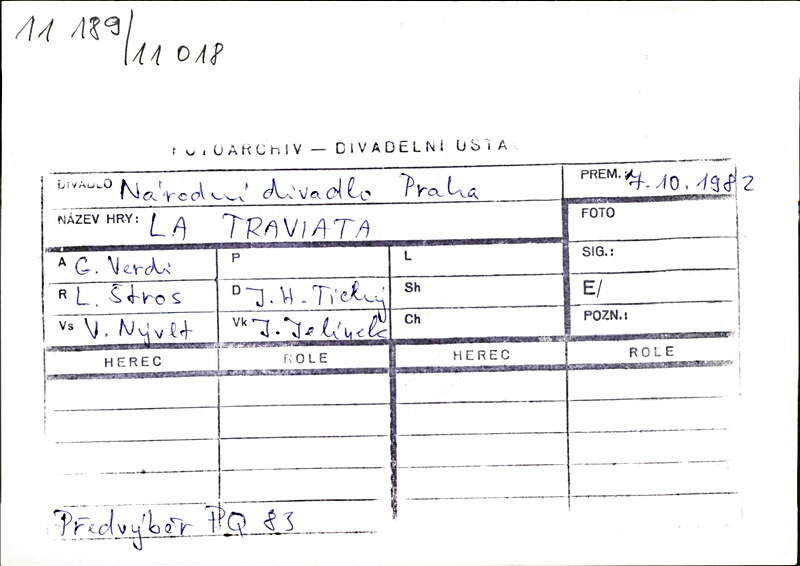 11 189/11 018
FOTOARCHIV — DIVADELNÍ ÚSTA
DIVADLO Národní divadlo Praha PREM. 7.10.1982
NÁZEV HRY: LA TRAVIATA FOTO
A G. Verdi P L SIG.:
R L. Štros D J. H. Tichý Sh E/
Vs V. Nývlt Vk J. Jelínek Ch POZN.:
HEREC ROLE HEREC ROLE
Předvýběr PQ 83